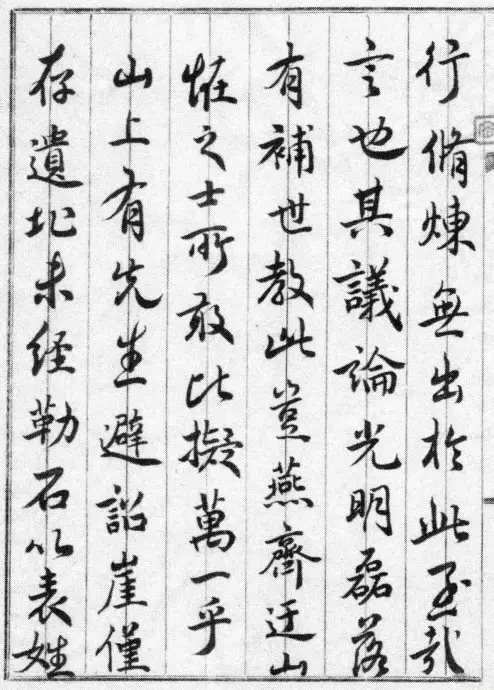 行脩煉無出於此至哉
言也其議論光明磊落
有補世教此豈燕齊迂山
恠之士所敢比擬萬一乎
山上有先生避詔崖僅
存遺址未經勒石以表姓